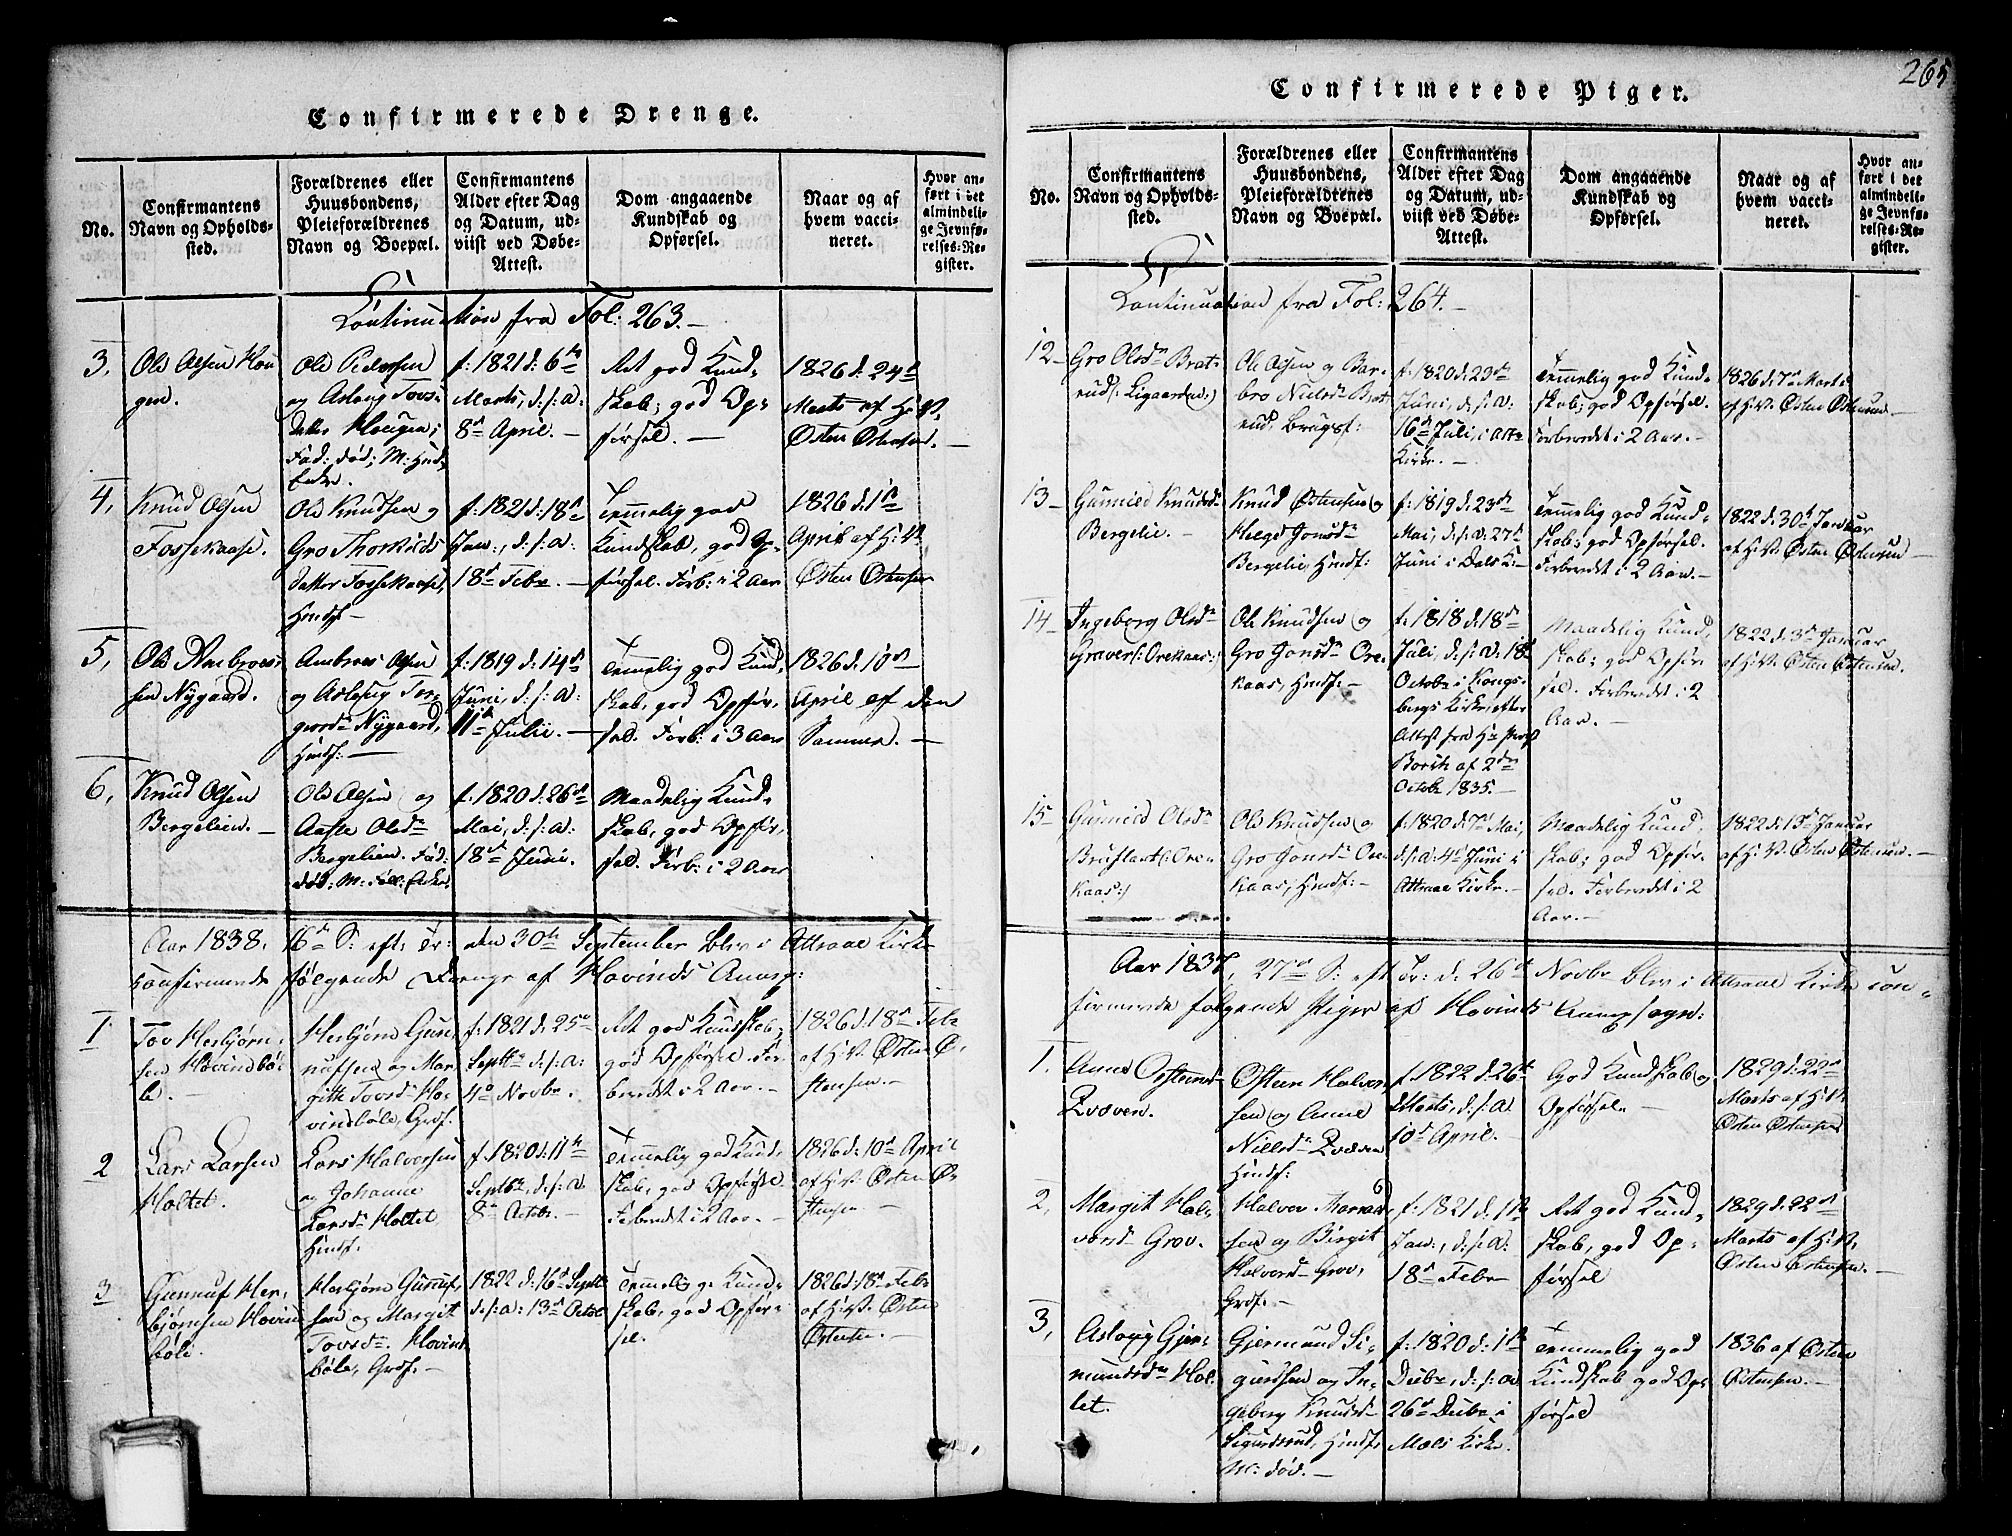 265
Confirmerede Drenge.
No.
Confirmantens
Navn og Opholds-
sted.
Forældrenes eller
Huusbondens,
Pleieforældrenes
Navn og Boepæl.
Confirmantens
Alder efter Dag
og Datum, ud-
viist ved Døbe-
Attest.
Dom angaaende
Kundskab og
Opførsel.
Naar og af
hvem vacci-
neret.
Hvor an-
ført i det
almindeli-
ge Jevnfø-
relses-Re-
gister.
Continuation fra Fol: 263.-
3,
Ole Olsen Hou
gen.
Ole Pedersen
og Aslaug Tovs-
datter Hougen;
Fad: død; M:
f: 1821 d: 6te
Marts, d:/:a:
8de April. -
Ret god Kund-
skab; god Op-
førsel. -
1826 d: 24de
Marts af H: V.
Østen Østensen.
4,
Knud Olsen
Fossekaase.
Ole Knudsen og
Gro Thorkilds
datter Fossekaase,
Huusf. -
f: 1821 d: 18de
Jan., d:/:a:
18de Febr. -
Temmelig god
Kundskab, god Op-
førsel. Forb: i 2 Aar
1826 d: 1ste
April af H: V.
Østen Østensen
5,
Ole Ambroes
sen Nygaard.
Ambroes Olsen
og Aslaug Tor-
Nygaard,
Huusf: -
f: 1819 d: 14de
Juni, d:/:a:
11te Julii. -
Temmelig god Kund,
skab, god Opfør,
sel. Forb: i 3 Aar
1826 d: 10de
April af den
Samme. -
6,
Knud Olsen
Bergelien. -
Ole Olsen og
Aaste Olsd.
Bergelien. Fad:
død; M:
f: 1820 d: 26de
Mai, d:/:a:
18de Juni.
Maadelig Kund-
skab, god Opfør,
sel. Forb: i 2 Aar
Aar 1838, 16de S: eft: Tr: den 30te September blev i Attraae Kirke
confirmerede følgende Drenge af Hovinds Annexs:
1.
Tov Herbjørn,
sen Hovindbø-
le.
Herbjørn Gun,
nufsen og Mar
gitte Tovsd. Ho-
vindbøle, Grdf.
f: 1821 d: 25de
Septbr d:/:a:
4de Novbr.
Ret god Kundskab,
god Opførsel. For-
beredt i 2 Aar. -
1826 d: 18de Febr
af H: V. Østen Ø-
stensen. -
2
Lars Larsen
Holtet.
Lars Halvorsen
og Johanne
Larsd. Holtet
Huusf.
f: 1820 d: 11te
Septbr, d:/:a:
8de Octobr. -
Temmelig god Kund,
skab, god Opførsel.
Forberedt i 2 Aar. -
1826 d: 10de April
af H: V. Østen Ø-
stensen -
3
Gunnuf Her-
bjørnsen Hovind
bøle.
Herbjørn Gunnuf,
sen og Margit
Tovsd. Hovind
bøle, Grdf. -
1822 d: 16de Septbr
d:/:a: 13de Octobr
Temmelig g: Kund-
skab, god Opfør-
sel.
1826 d: 18de Febr
af H: V. Østen
Østensen. -
Confirmerede Piger.
No.
Confirmantens
Navn og Opholds-
sted.
Forældrenes eller
Huusbondens,
Pleieforældrenes
Navn og Boepæl.
Confirmantens
Alder efter Dag
og Datum, ud-
viist ved Døbe-
Attest.
Dom angaaende
Kundskab og
Opførsel.
Naar og af
hvem vacci-
neret.
Hvor an-
ført i det
almindeli-
ge Jevnfø-
relses-Re-
gister.
Continuation fra Fol: 264. -
12
Gro Olsd. Brat
rud (: Ligaarden:)
Ole Olsen og Bar-
bro Nielsd. Brat
rud, Brugsf:
f: 1820 d: 23de
Juni, d:/:a:
16de Juli, i Attr.
Kirke. -
Temmelig god Kund-
skab; god Opførsel.
Forberedt i 2 Aar. -
1826 d: 7de Marts
af H: V. Østen Østensen. -
13
Gunnild Knudsd.
Bergelie. -
Knud Østensen og
Helge Jonsd.
Bergelie, Huusf:
f: 1819 d: 23de
Mai, d:/:a: 27de
Juni i Dals K: -
Temmelig god Kund-
skab; god Opførsel.
Forberedt i 2 Aar. -
1822 d: 30te Januar
af H: V. Østen Østensen -
14
Ingeborg Olsd.
Graver (: Orekaas:)
Ole Knudsen og
Gro Jonsd. Ore-
kaas, Huusf: -
f: 1818 d: 18de
Juli, d:/:a: 18de
Octobr i Kongs-
bergs Kirke, efter
Attest fra Hr Provst
Borch af 2den
Octobr 1835. -
Maadelig Kund,
skab; god Opfør-
sel. Forberedt i 2
Aar. -
1822 d: 3de Januar
af H: V. Østen Østensen.
15
Gunnild Olsd.
(: Ore-
kaas:)
Ole Knudsen og
Gro Jonsd. Ore
kaas, Huusf: -
f: 1820 d: 7de Mai,
d:/:a: 4de Juni i
Attraae Kirke. -
Maadelig Kund,
skab; god Opfør-
sel. Forberedt i 2
Aar. -
1822 d: 13de Januar
af H: V. Østen Østensen. -
Aar 1837, 27de S: eft Tr: d: 26de Novbr blev i Attraae Kirke con-
firmerede følgende Piger af Hovinds Annexsogn:
1.
Anne Østensd.
Qvæven.
Østen Halvor,
sen og Anne
Nielsd. Qvæven
Huusf:
f. 1822 d: 26de
Marts, d:/:a.
10de April. -
God Kundskab og
Opførsel. -
1829 d: 22de
Marts af H: V.
Østen Østensen
2,
Margit Hal-
vorsd. Grov.
Halvor
sen og Birgit
Halvorsd. Grov,
Grdf. -
f: 1821 d: 1ste
Jan., d:/:a:
18de Febr
Ret god Kund-
skab, god Op-
førsel
1829 d: 22de
Marts af H: V.
Østen Østensen. -
3,
Aslaug Gjer-
mundsd. Hol-
tet.
Gjermund Si-
gurdsen og In-
geborg Knudsd.
Sigurdsrud, Huusf:
M: død. -
f: 1820 d: 1ste
Decbr, d:/:a
26de Decbr i
Mæls Kirke.
Temmelig god
Kundskab god Op-
førsel
1836 af Østen
Østensen. -